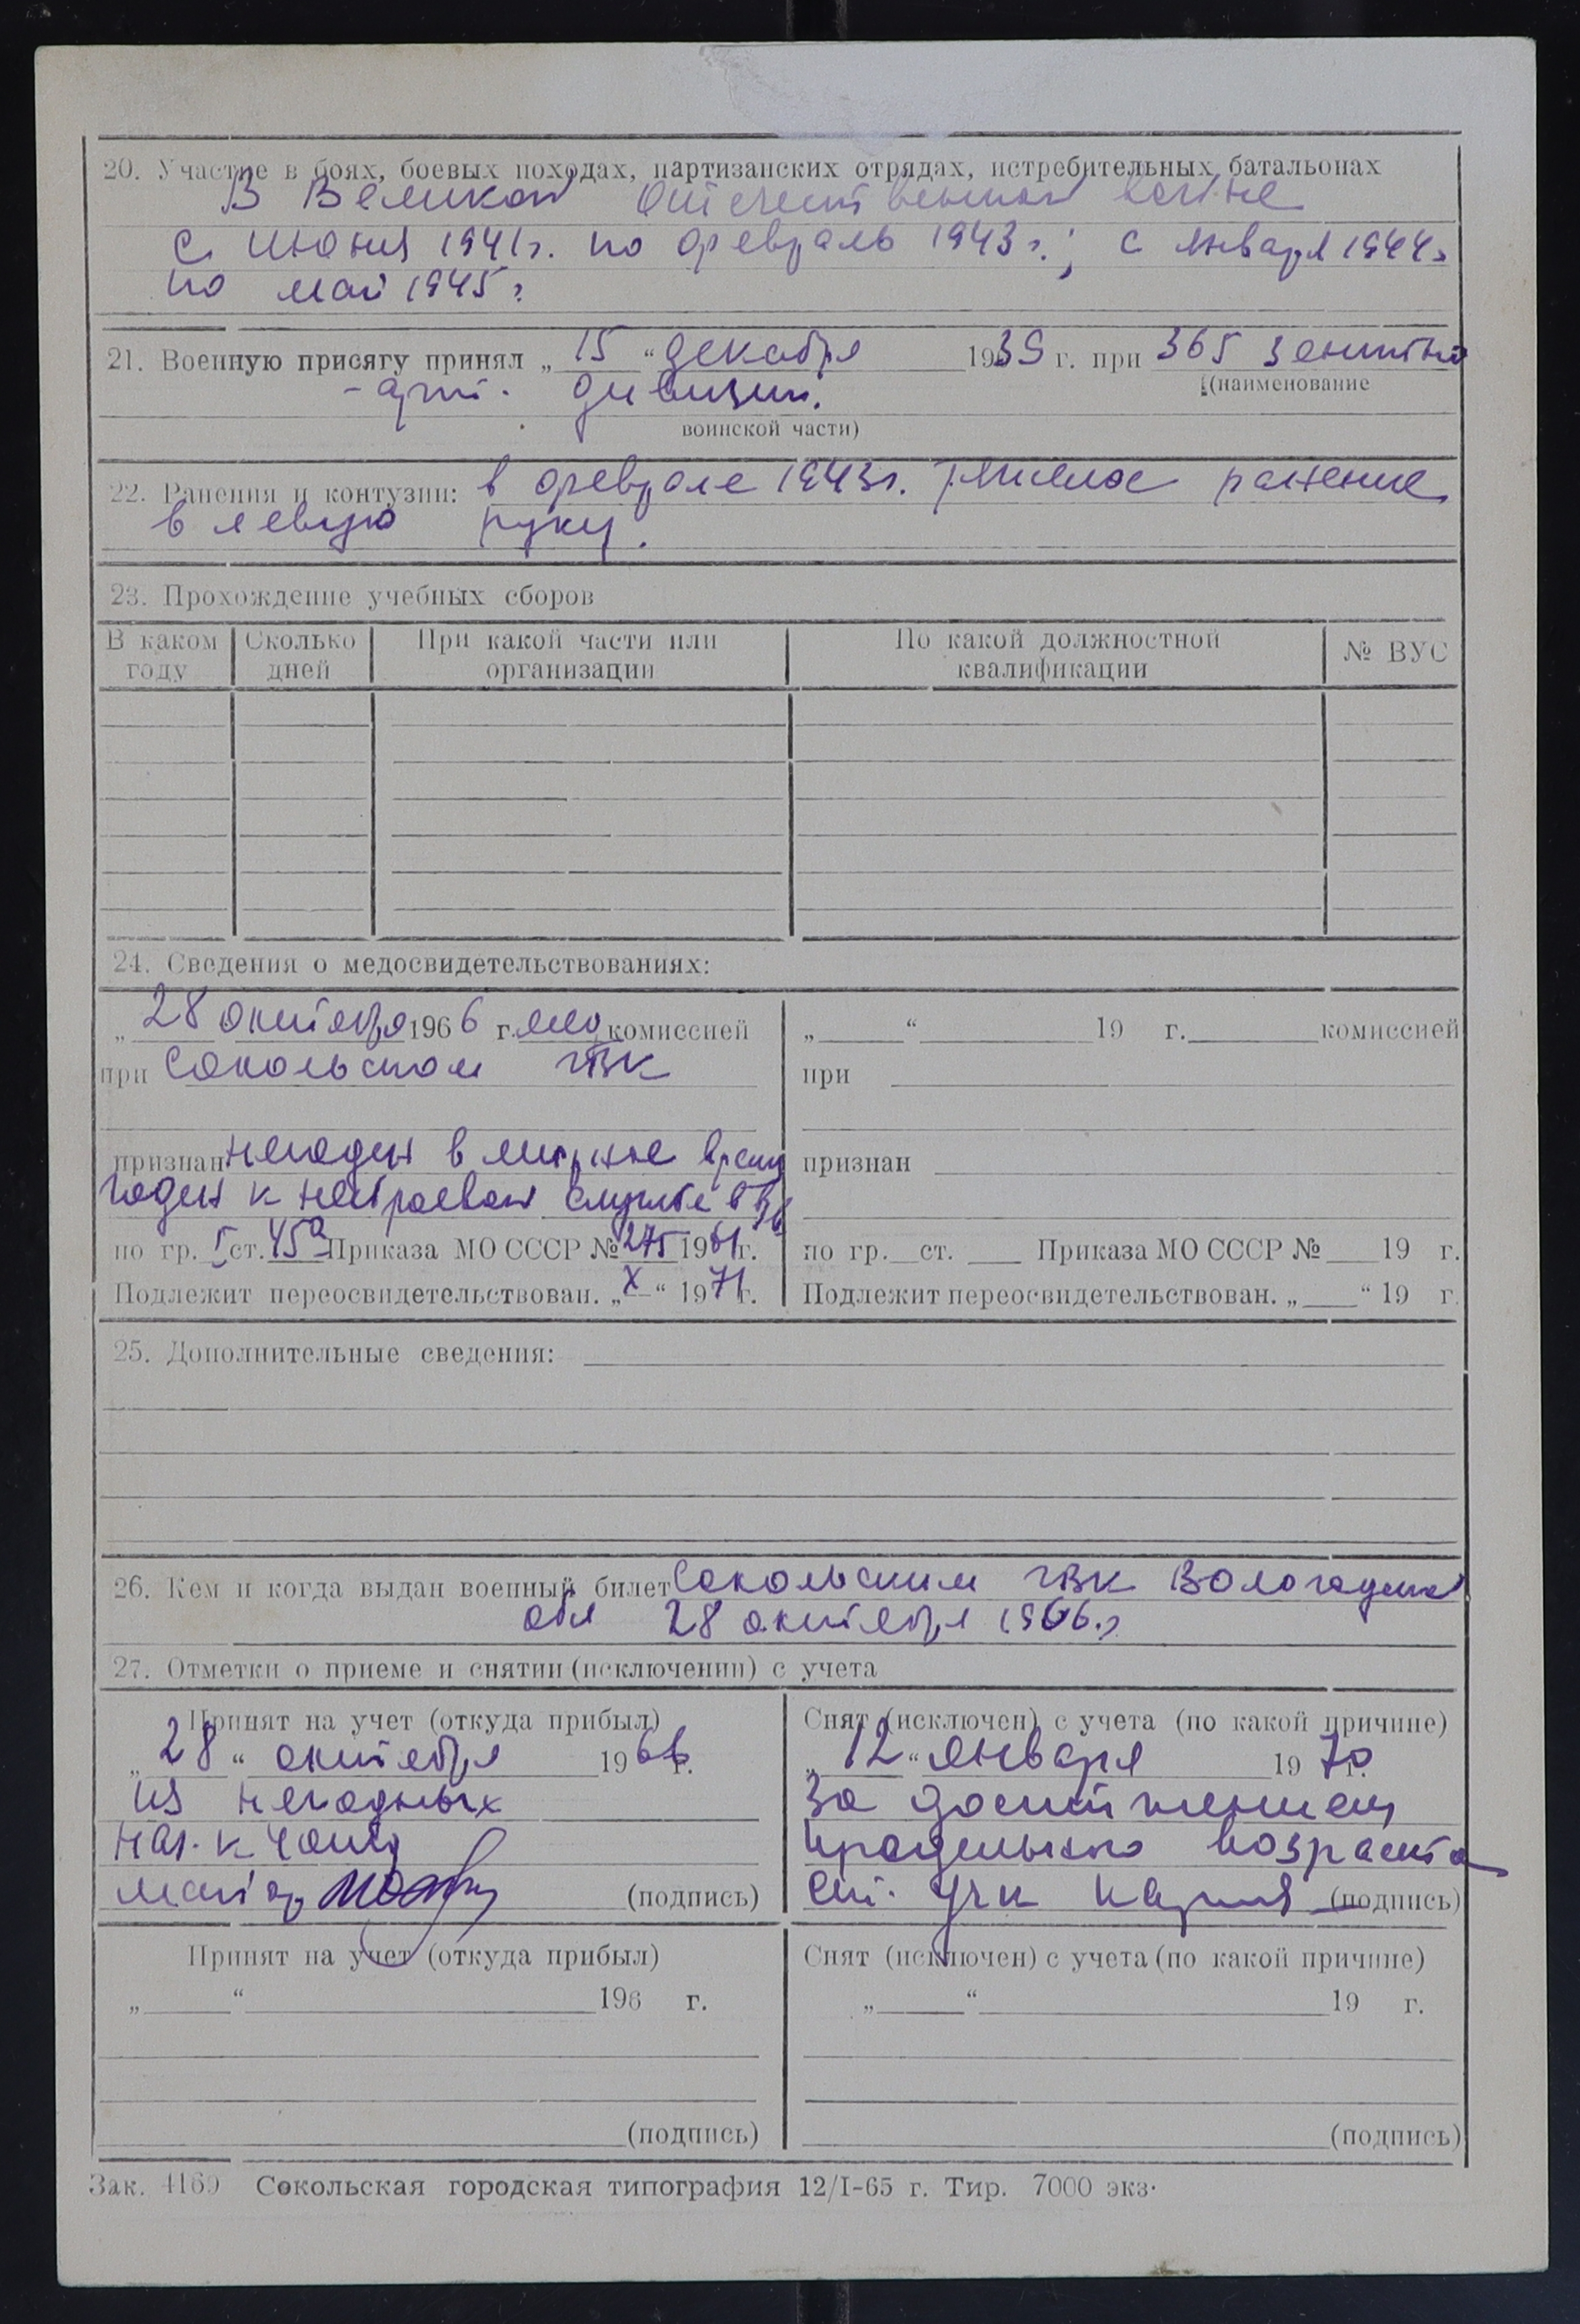 20. Участие в боях, боевых походах, партизанских отрядах, истребительных батальонах
В Великой Отечественной войне
с июня 1941г. по февраль 1943г.; с января 1944г
по май 1945г.
21. Военную присягу принял „15“ декабря 1939 г. при 365 зенитно
(наименование
-арт. дивизии.
воинской части)
22. Ранения и контузии: в феврале 1943г. тяжелое ранение
в левую руку.
23. Прохождение учебных сборов
В каком году Сколько дней При какой части или организации По какой должностной квалификации № ВУС
24. Сведения о медосвидетельствованиях:
„28 октября 1966 г. мед комиссией
при Сокольском ГВК
признан негоден в мирное время
годен к нестроевой службе в в/в
по гр. I ст. 45а Приказа МО СССР № 275 1961г.
Подлежит переосвидетельствован. „X“ 1971г.
„ “ 19 г. комиссией
при
признан
по гр. ст. Приказа МО СССР № 19 г.
Подлежит переосвидетельствован. „ “ 19 г.
25. Дополнительные сведения:
26. Кем и когда выдан военный билет Сокольским ГВК Вологодской
обл 28 октября 1966г.
27. Отметки о приеме и снятии (исключении) с учета
Принят на учет (откуда прибыл)
„28“ октября 1966 г.
из негодных
нач. 4 части
майор (подпись)
Снят (исключен) с учета (по какой причине)
„12“ января 1970 г.
за достижением
предельного возраста
(подпись)
Принят на учет (откуда прибыл)
„ “ 196 г.
(подпись)
Снят (исключен) с учета (по какой причине)
„ “ 19 г.
(подпись)
Зак. 4169 Сокольская городская типография 12/I-65 г. Тир. 7000 экз.